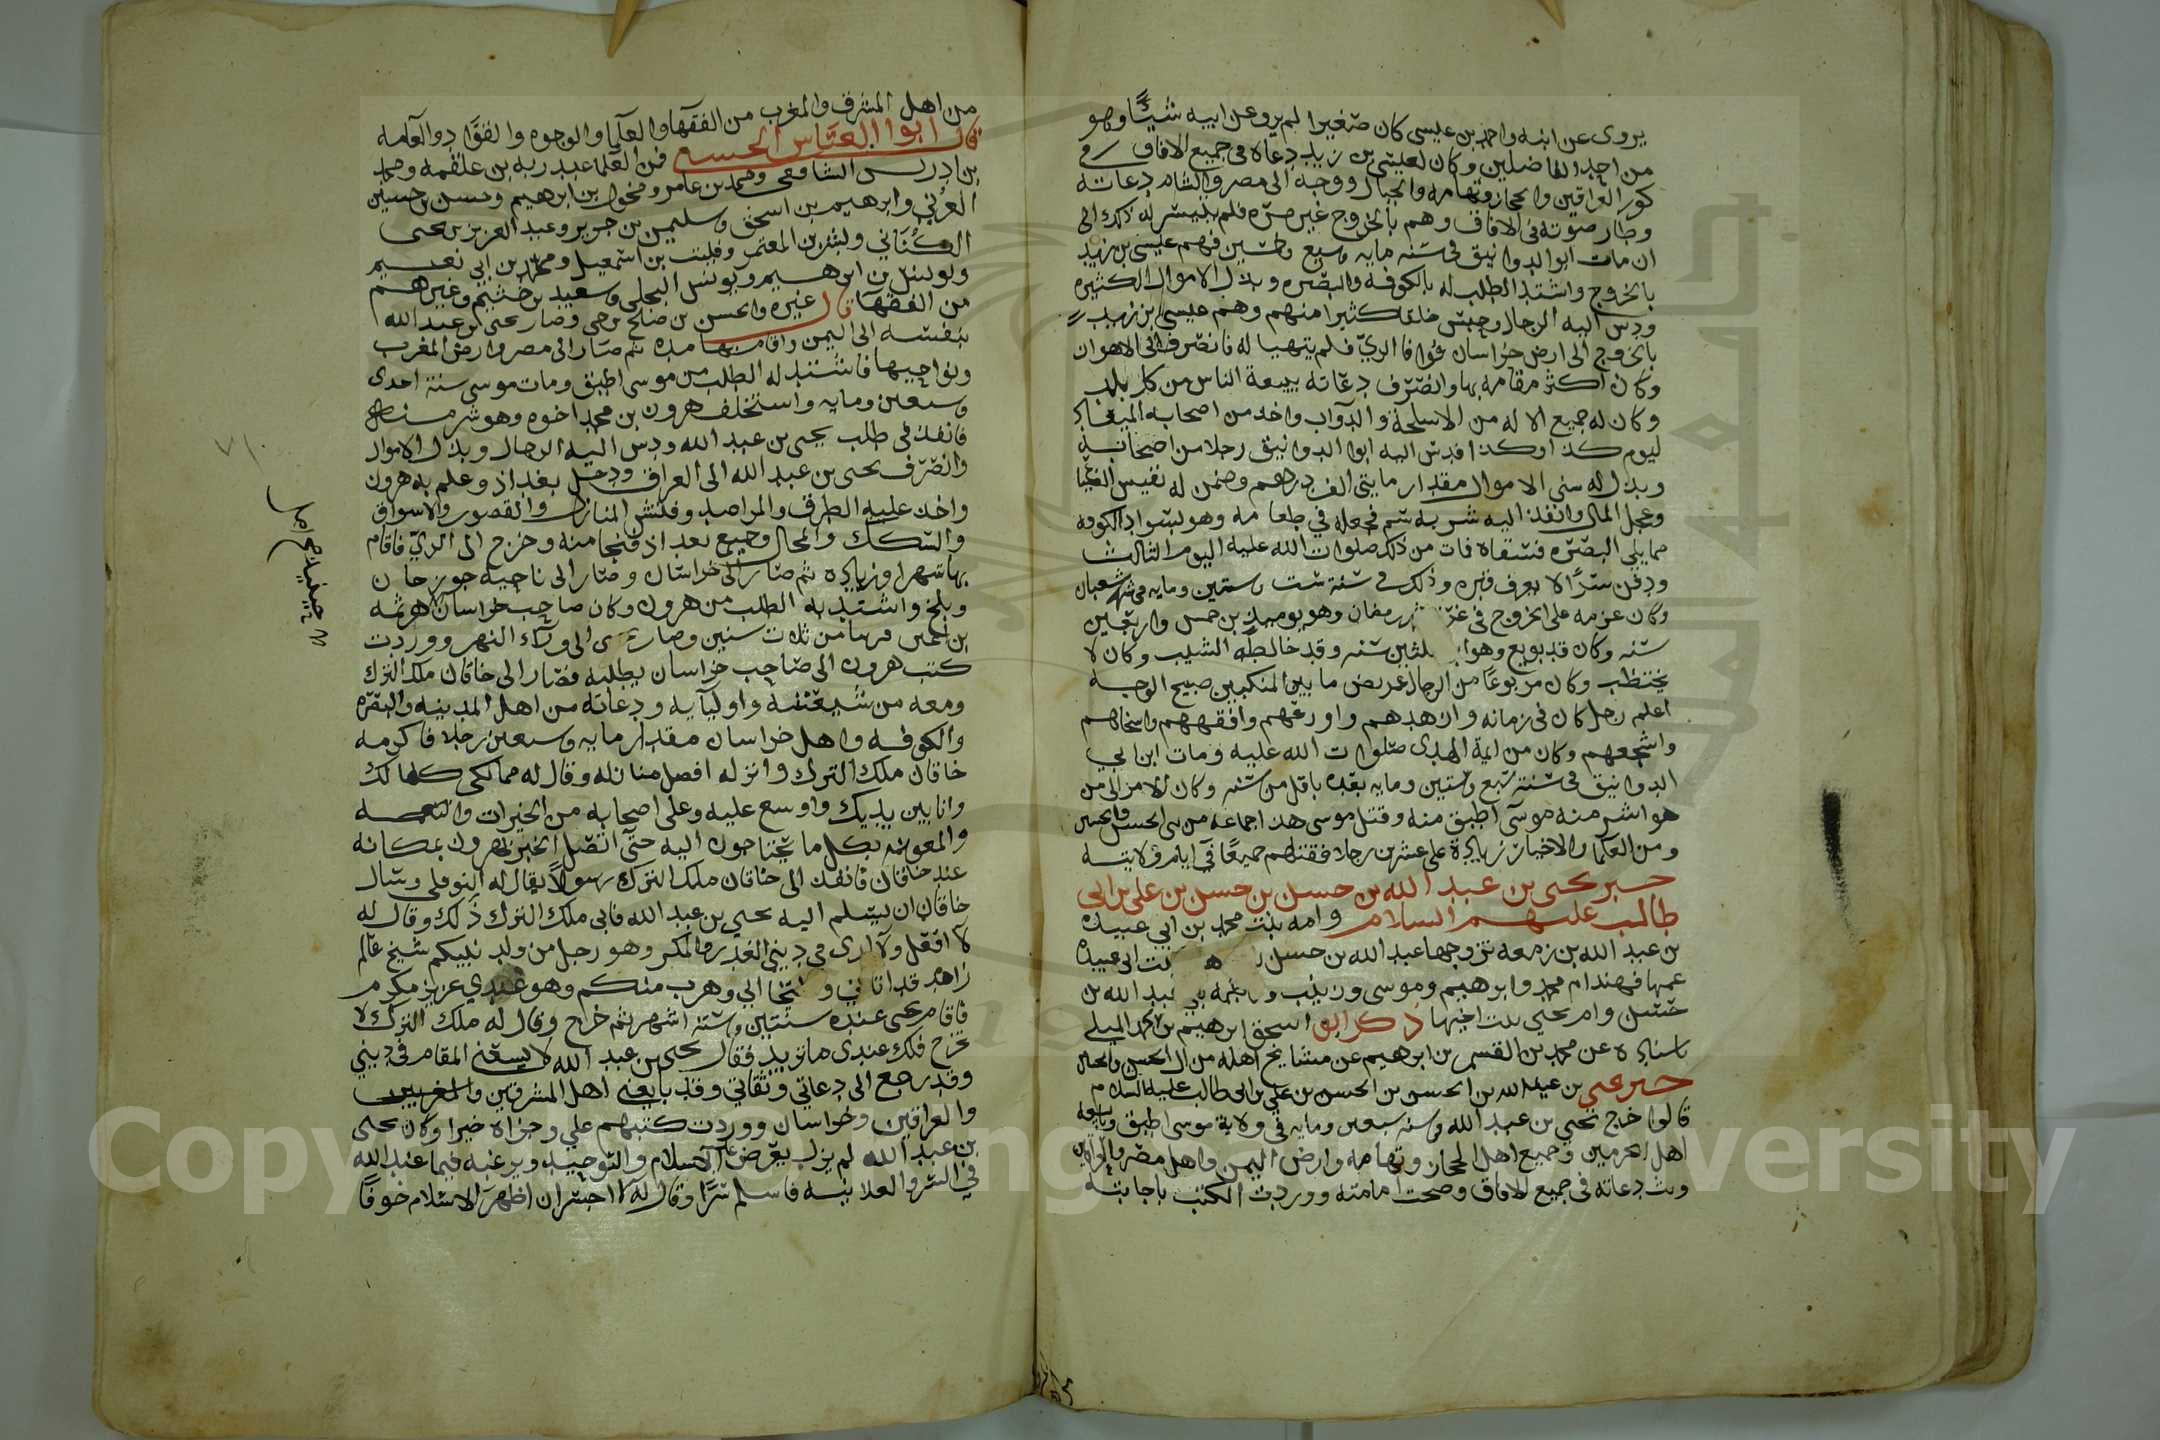 يروى عن ابنه واحمد بن عيسى كان صغيرا لم يرو عن ابيه شيئا وهو
من احد الفاضلين وكان لعيسى بن زيد دعاه في جميع الافاق في
كور العراقين والحجاز وتهامه والجبال ووجه الى مصر والشام دعاته
وطار صوته في الافاق وهم بالخروج غير مره فلم يتيسر له ذلك الى
ان مات ابو الدوانيق في سنه مايه وسبع فهم عيسى بن زيد
بالخروج واشتد الطلب له بالكوفه والبصره وبذل الاموال الكثيره
ودس اليه الرجال وحبس خلقا كثيرا منهم وهم عيسى بن زيد
بالخروج الى ارض خراسان فوافا الري فلم يتهيا له فانصرف الى الاهواز
وكان اكثر مقامه بها وانصرف دعاته ببيعة الناس من كل بلد
وكان له جميع الاله من الاسلحة والدواب واخذ من اصحابه الميعاد
ليوم كذا وكذا فدس اليه ابوا الدوانيق رجلا من اصحابه
وبذل له سنى الاموال مقدار مايتى الف درهم وضمن له نفيس
وعجل المال وانفذ اليه شربه سم فجعله في طعامه وهو بسواد الكوفه
مما يلي البصره فسقاه فات من ذلك صلوات الله عليه اليوم الثالث
ودفن سرا لا يعرف قبره وذلك في سنة ست وستين ومايه في شهر شعبان
وكان عزمه على الخروج في رمضان وهو يوميذ بن خمس واربعين
سنه وكان قد بويع وهو ابن ثلثين سنه وقد خالطه الشيب وكان لا
يختضب وكان مربوعا من الرجال عريض ما بين المنكبين صبيح الوجه
اعلم رجل كان في زمانه وازهدهم واورعهم وافقههم واسخاهم
واشجعهم وكان من ايمة الهدى صلوات الله عليه ومات ابن ابي
الدوانيق في سنة تسع وستين ومايه بعده باقل من سنه وكان الامر الى من
هو اشر منه موسى اطبق منه وقتل موسى هذا جماعه من بنى الحسن والحسين
ومن العلما والاخيار زيادة على عشرين رجلا فقتلهم جميعا في ايام ولايته
خبر يحيى بن عبد الله بن حسن بن حسن بن على بن ابى
طالب عليهم السلام وامه بنت محمد بن ابي عبيدة
بن عبد الله بن زمعه تزوجها عبد الله بن حسن بنت ابى عبيدة
عمها فهند ام محمد وابرهيم وموسى وزينب وفاطمه بني عبد الله بن
حسن وام يحيى بنت اخيها ذكر ابو اسحق ابرهيم بن
باسناده عن محمد بن القسم بن ابرهيم عن مشايخ اهله من ال الحسن والحسين
خبر يحيى بن عبد الله بن الحسن بن الحسن بن علي بن ابى طالب عليه السلام
قالوا خرج يحيى بن عبد الله في سنه سبعين ومايه في ولاية موسى اطبق وبايعه
اهل الحرمين وجميع اهل الحجاز وتهامه وارض اليمن واهل مصر والعراقين
وبث دعاته في جميع الافاق وصحت امامته ووردت الكتب باجابته
من اهل المشرق والمغرب من الفقها والعلما والوجوه والقواد والعامه
قال ابوا العباس الحسنى فمن العلما عبد ربه بن علقمه ومحمد
بن ادريس الشافعى ومحمد بن عامر ومخول بن ابرهيم وحسن بن حسين
العرني وابرهيم بن اسحق وسليمن بن جرير وعبد العزيز بن يحيى
الكناني وبشر بن المعتمر وفليت بن اسمعيل ومحمد بن ابي نعيم
ويونس بن ابرهيم ويونس البجلى وسعيد بن خثيم وغيرهم
من الفقها قال غيره والحسن بن صالح بن حي وصار يحيى بن عبد الله
بنفسه الى اليمن واقام بها مده ثم صار الى مصر وارض المغرب
ونواحيها فاشتد له الطلب من موسى اطبق ومات موسى سنة احدى
وسبعين ومايه واستخلف هرون بن محمد اخوه وهو شر منه
فانفذ في طلب يحيى بن عبد الله ودس اليه الرجال وبذل الاموال
وانصرف يحيى بن عبد الله الى العراق ودخل بغداذ وعلم به هرون
واخذ عليه الطرق والمراصد وفتش المنازل والقصور والاسواق
والسكك والمحال وجميع بغداذ فنجا منه وخرج الى الري فاقام
بها شهرا وزياده ثم صار الى خراسان وصار الى ناحية جوزجان
وبلخ واشتد به الطلب من هرون وكان صاحب خراسان هرثمه
بن اعين قريبا من ثلاث سنين وصار يحيى الى ورآء النهر ووردت
كتب هرون الى صاحب خراسان بطلبه فصار الى خاقان ملك الترك
ومعه من شيعته واوليآيه ودعاته من اهل المدينه والبصره
والكوفه واهل خراسان مقدار مايه وسبعين رجلا فاكرمه
خاقان ملك الترك وانزله افضل منازله وقال له ممالكى كلها لك
وانا بين يديك واوسع عليه وعلى اصحابه من الخيرات والنعمه
والمعونه بكل ما يحتاجون اليه حتى اتصل الخبر بهرون بمكانه
عند خاقان فانفذ الى خاقان ملك الترك رسولا يقال له النوفلى وسال
خاقان ان يسلم اليه يحيى بن عبد الله فابى ملك الترك ذلك وقال له
لا افعل ولا ارى في ديني الغدر والمكر وهو رجل من ولد نبيكم شيخ عالم
زاهد قد اتاني والتجا الي وهرب منكم وهو عندي عزيز مكرم
فاقام يحيى عنده سنتين وستة اشهر ثم خرج وقال له ملك الترك لا
تخرج فلك عندى ما تريد فقال يحيى بن عبد الله لا يسعنى المقام في ديني
وقد رجع الى دعاتي وثقاتي وقد بايعنى اهل المشرقين والمغربين
والعراقين وخراسان ووردت كتبهم علي وجزاه خيرا وكان يحيى
بن عبد الله لم يزل يعرض عليه الاسلام والتوحيد ويرغبه فيما عند الله
في السر والعلانيه فاسلم سرا وقال له لا اجسر ان اظهر الاسلام خوفا
Copyright © King Saud University